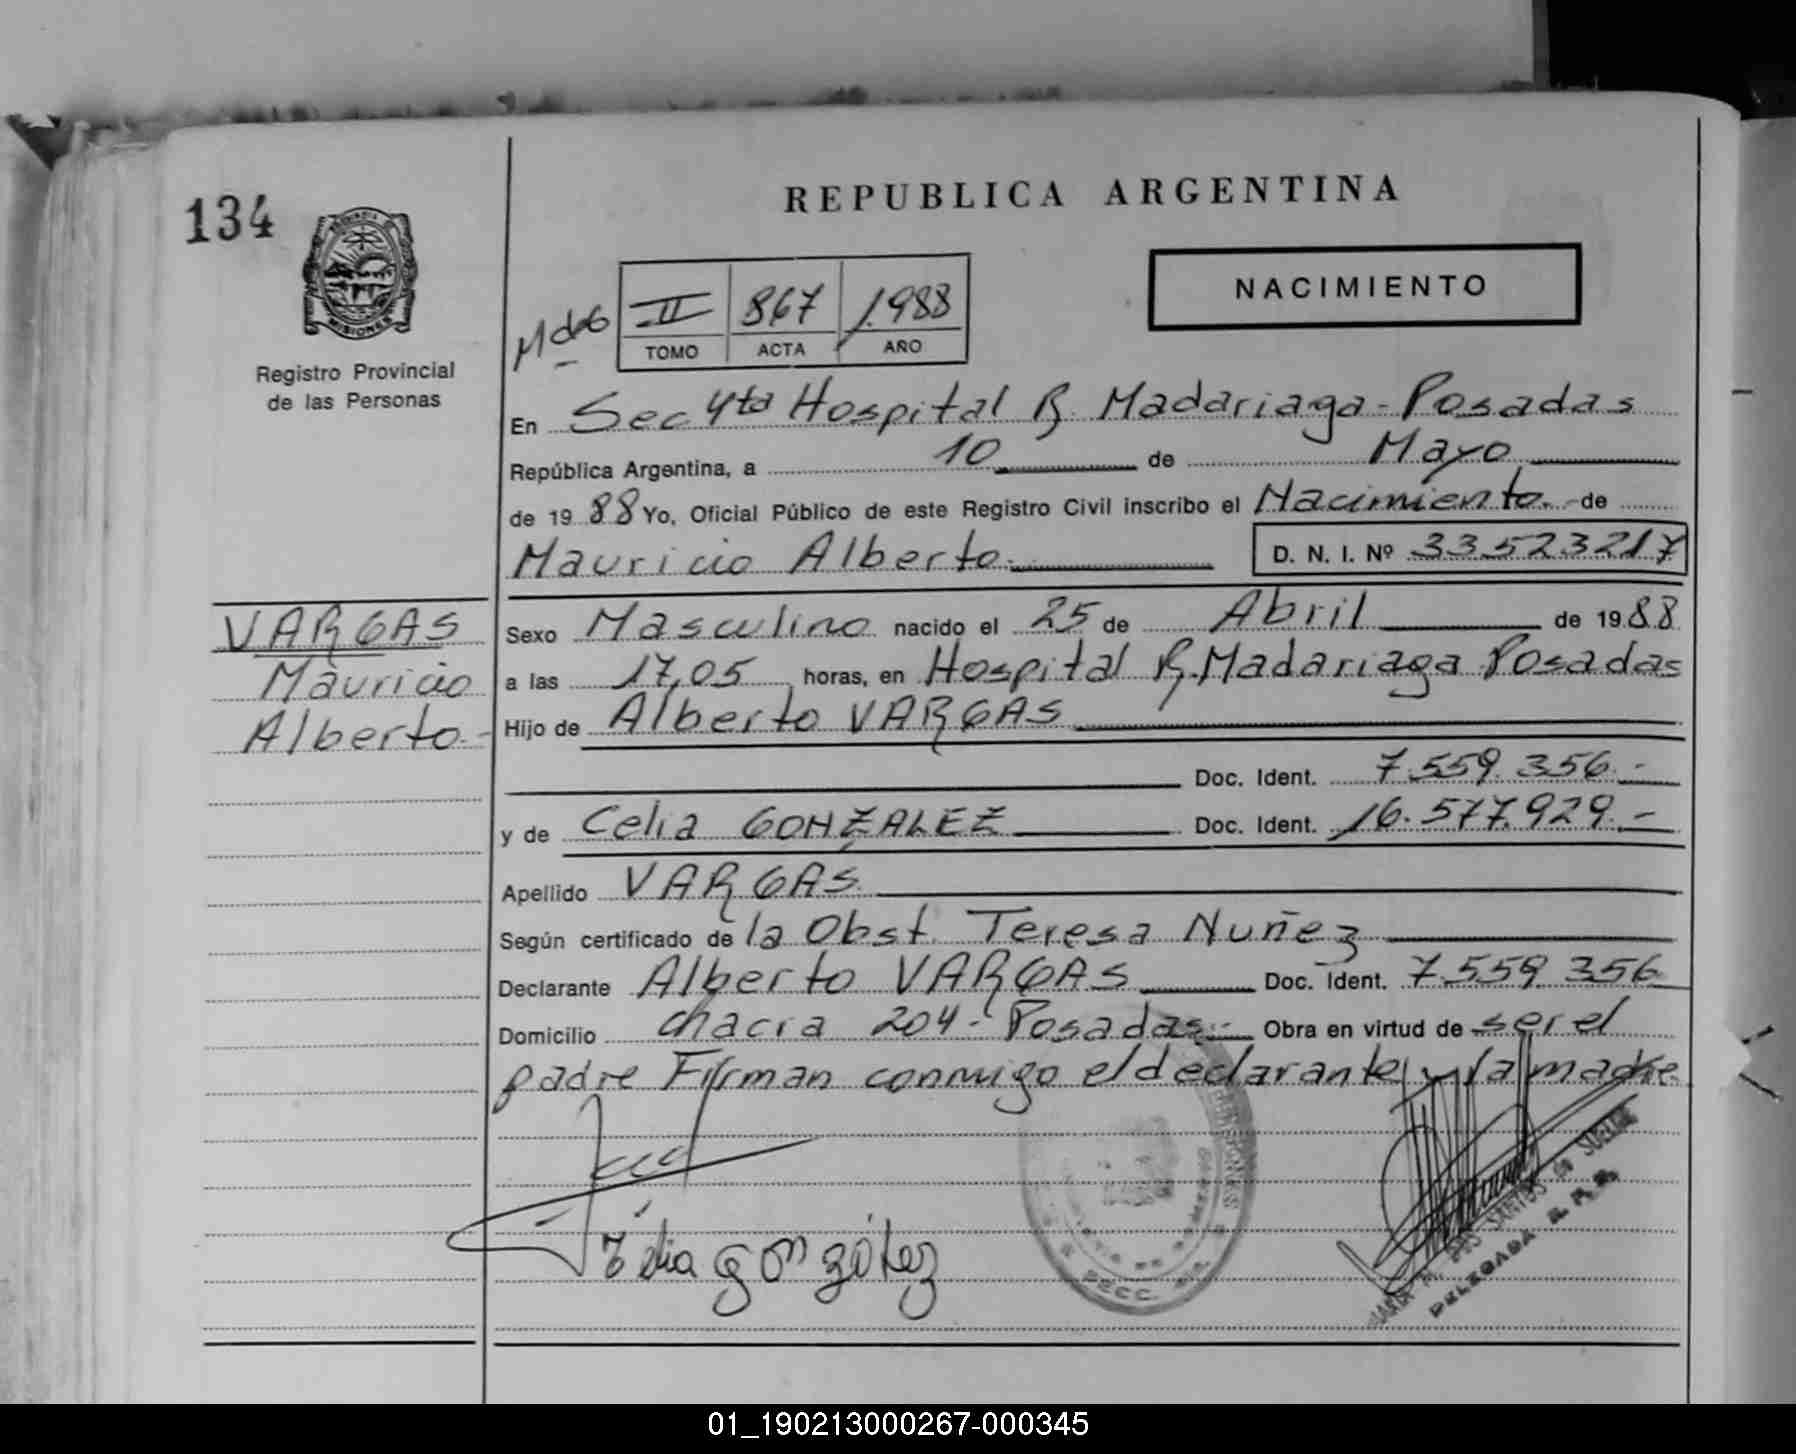 REPUBLICA ARGENTINA
134
MISIONES
Registro Provincial
de las Personas
II 867 1.988
TOMO ACTA AÑO
NACIMIENTO
En Sec 4ta Hospital R. Madariaga - Posadas
República Argentina, a 10 de Mayo
de 1988 Yo, Oficial Público de este Registro Civil inscribo el Nacimiento. de
Mauricio Alberto. D. N. I. Nº 33523217
VARGAS
Mauricio
Alberto.-
Sexo Masculino nacido el 25 de Abril de 1988
a las 17,05 horas, en Hospital R. Madariaga Posadas
Hijo de Alberto VARGAS
Doc. Ident. 7.559.356.-
y de Celia GONZALEZ Doc. Ident. 16.577.929.-
Apellido VARGAS
Según certificado de la Obst. Teresa Nuñez
Declarante Alberto VARGAS Doc. Ident. 7.559.356
Domicilio chacra 204 - Posadas.- Obra en virtud de ser el
padre Firman conmigo el declarante y la madre
gonzález
DELEGADA R. P. P.
01_190213000267-000345